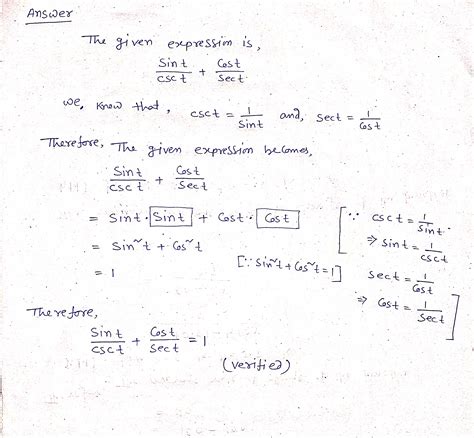 Answer
The given expression is,
Sin t / csc t + Cos t / Sec t
we, know that, csc t = 1 / Sin t and, Sec t = 1 / Cos t
Therefore, The given expression becomes,
Sin t / csc t + Cos t / Sec t
= Sin t · Sin t + Cos t · Cos t
[∵ csc t = 1 / Sin t.
= Sin~t + Cos~t
⇒ Sin t = 1 / csc t
= 1 [∵ Sin~t + Cos~t = 1]
Sec t = 1 / Cos t
⇒ Cos t = 1 / Sec t]
Therefore,
Sin t / csc t + Cos t / Sec t = 1
(verified)